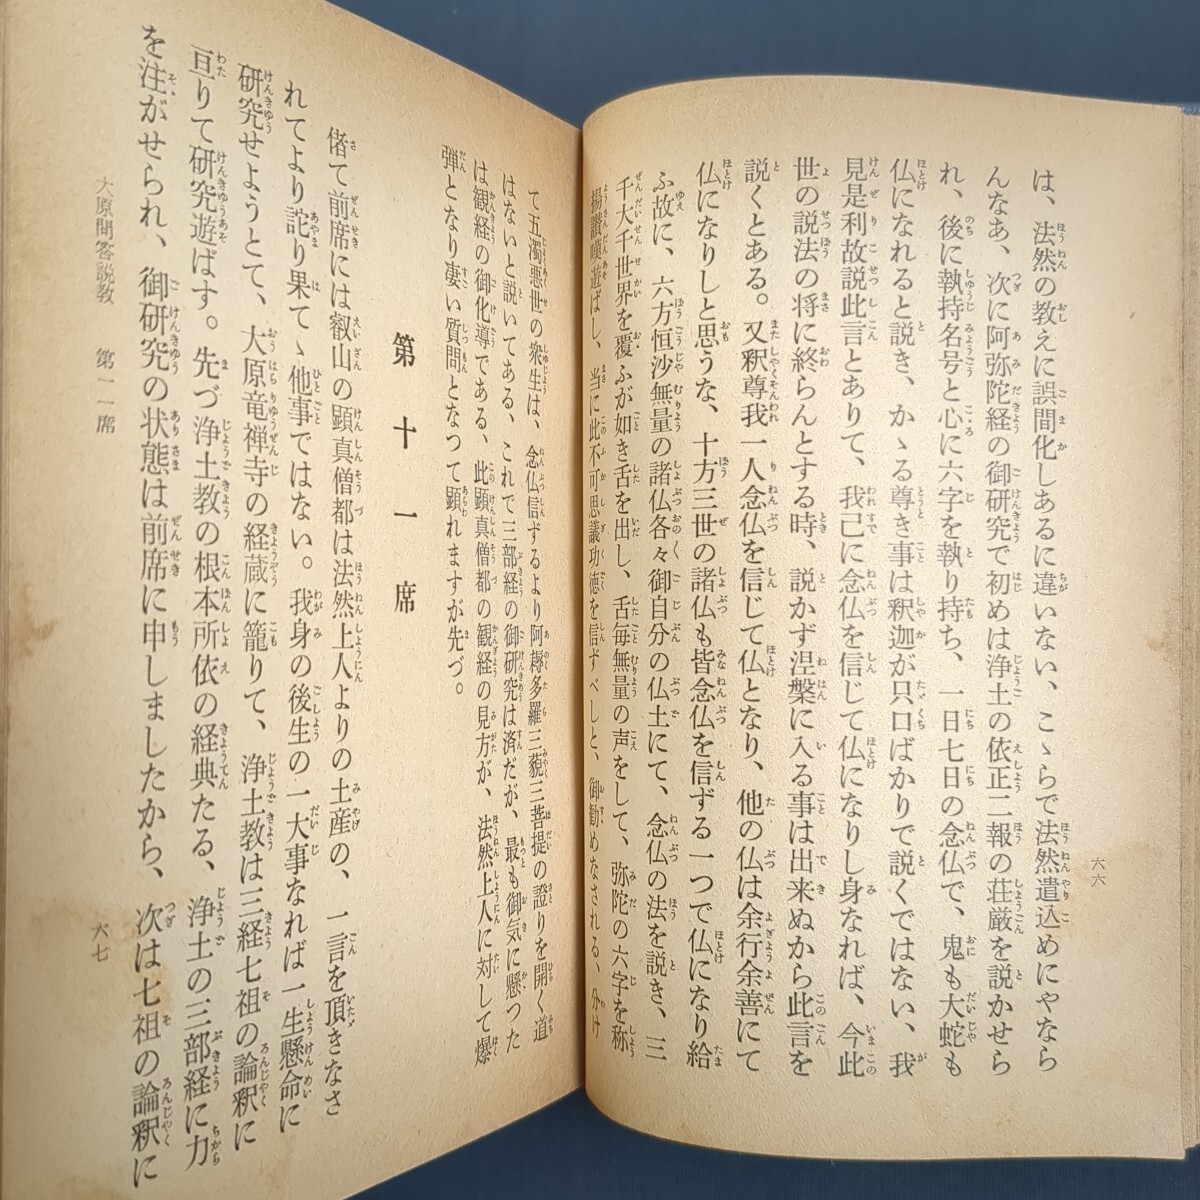 六六
は、法然の教えに誤間化しあるに違いない、こゝらで法然遣込めにやなら
んなあ、次に阿弥陀経の御研究で初めは浄土の依正二報の荘厳を説かせら
れ、後に執持名号と心に六字を執り持ち、一日七日の念仏で、鬼も大蛇も
仏になれると説き、かゝる尊き事は釈迦が只口ばかりで説くではない、我
見是利故説此言とありて、我己に念仏を信じて仏になりし身なれば、今此
世の説法の将に終らんとする時、説かず涅槃に入る事は出来ぬから此言を
説くとある。又釈尊我一人念仏を信じて仏となり、他の仏は余行余善にて
仏になりしと思うな、十方三世の諸仏も皆念仏を信ずる一つで仏になり給
ふ故に、六方恒沙無量の諸仏各々御自分の仏土にて、念仏の法を説き、三
千大千世界を覆ふが如き舌を出し、舌毎無量の声をして、弥陀の六字を称
揚讃嘆遊ばし、当に此不可思議功徳を信ずべしと、御勧めなされる、分け
て五濁悪世の衆生は、念仏信ずるより阿耨多羅三藐三菩提の證りを開く道
はないと説いてある、これで三部経の御研究は済だが、最も御気に懸つた
は観経の御化導である、此顕真僧都の観経の見方が、法然上人に対して爆
弾となり凄い質問となつて顕れますが先づ。
第十一席
偖て前席には叡山の顕真僧都は法然上人よりの土産の、一言を頂きなさ
れてより詑り果てゝ他事ではない。我身の後生の一大事なれば一生懸命に
研究せようとて、大原竜禅寺の経蔵に籠りて、浄土教は三経七祖の論釈に
亘りて研究遊ばす。先づ浄土教の根本所依の経典たる、浄土の三部経に力
を注がせられ、御研究の状態は前席に申しましたから、次は七祖の論釈に
大原問答説教　第一一席
六七